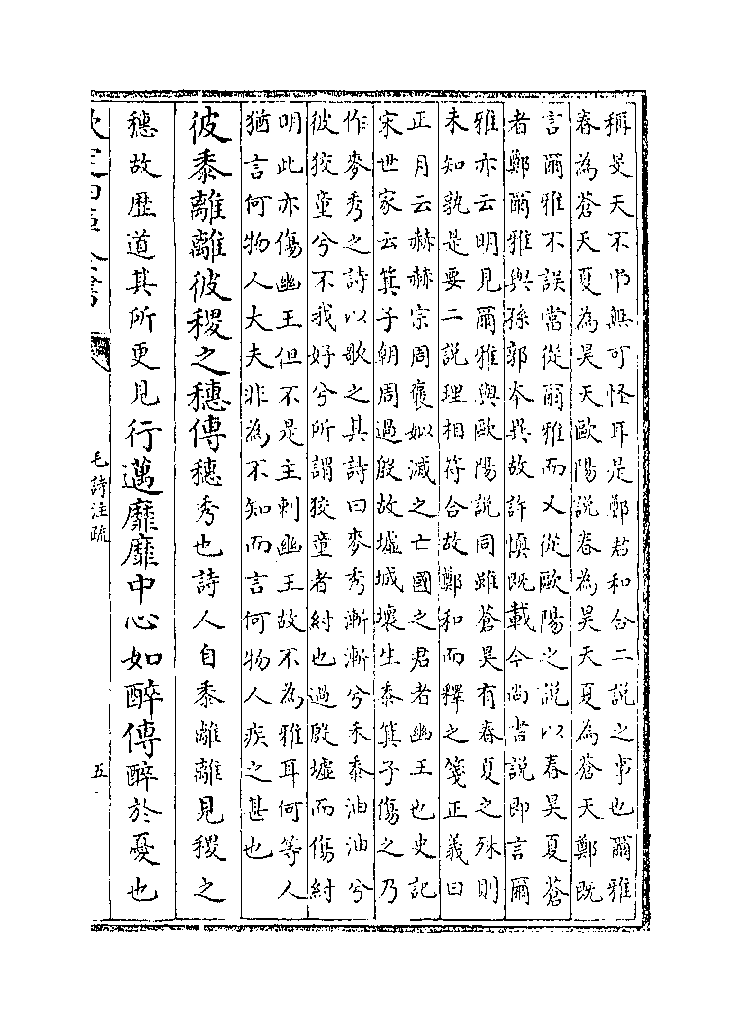 稱旻天不弔無可怪耳是鄭君和合二說之事也爾雅
春為蒼天夏為昊天歐陽說春為昊天夏為蒼天鄭既
言爾雅不誤當從爾雅而又從歐陽之說以春昊夏蒼
者鄭爾雅與孫郭本異故許慎既載今尚書說即言爾
雅亦云明見爾雅與歐陽說同雖蒼昊有春夏之殊則
未知孰是要二說理相符合故鄭和而釋之箋正義曰
正月云赫赫宗周褒姒滅之亡國之君者幽王也史記
宋世家云箕子朝周過殷故墟城壞生黍箕子傷之乃
作麥秀之詩以歌之其詩曰麥秀漸漸兮禾黍油油兮
彼狡童兮不我好兮所謂狡童者紂也過殷墟而傷紂
明此亦傷幽王但不是主刺幽王故不為雅耳何等人
猶言何物人大夫非為不知而言何物人疾之甚也
彼黍離離彼稷之穗傳穗秀也詩人自黍離離見稷之
穗故歷道其所更見行邁靡靡中心如醉傳醉於憂也
欽定四庫全書
毛詩注疏
五